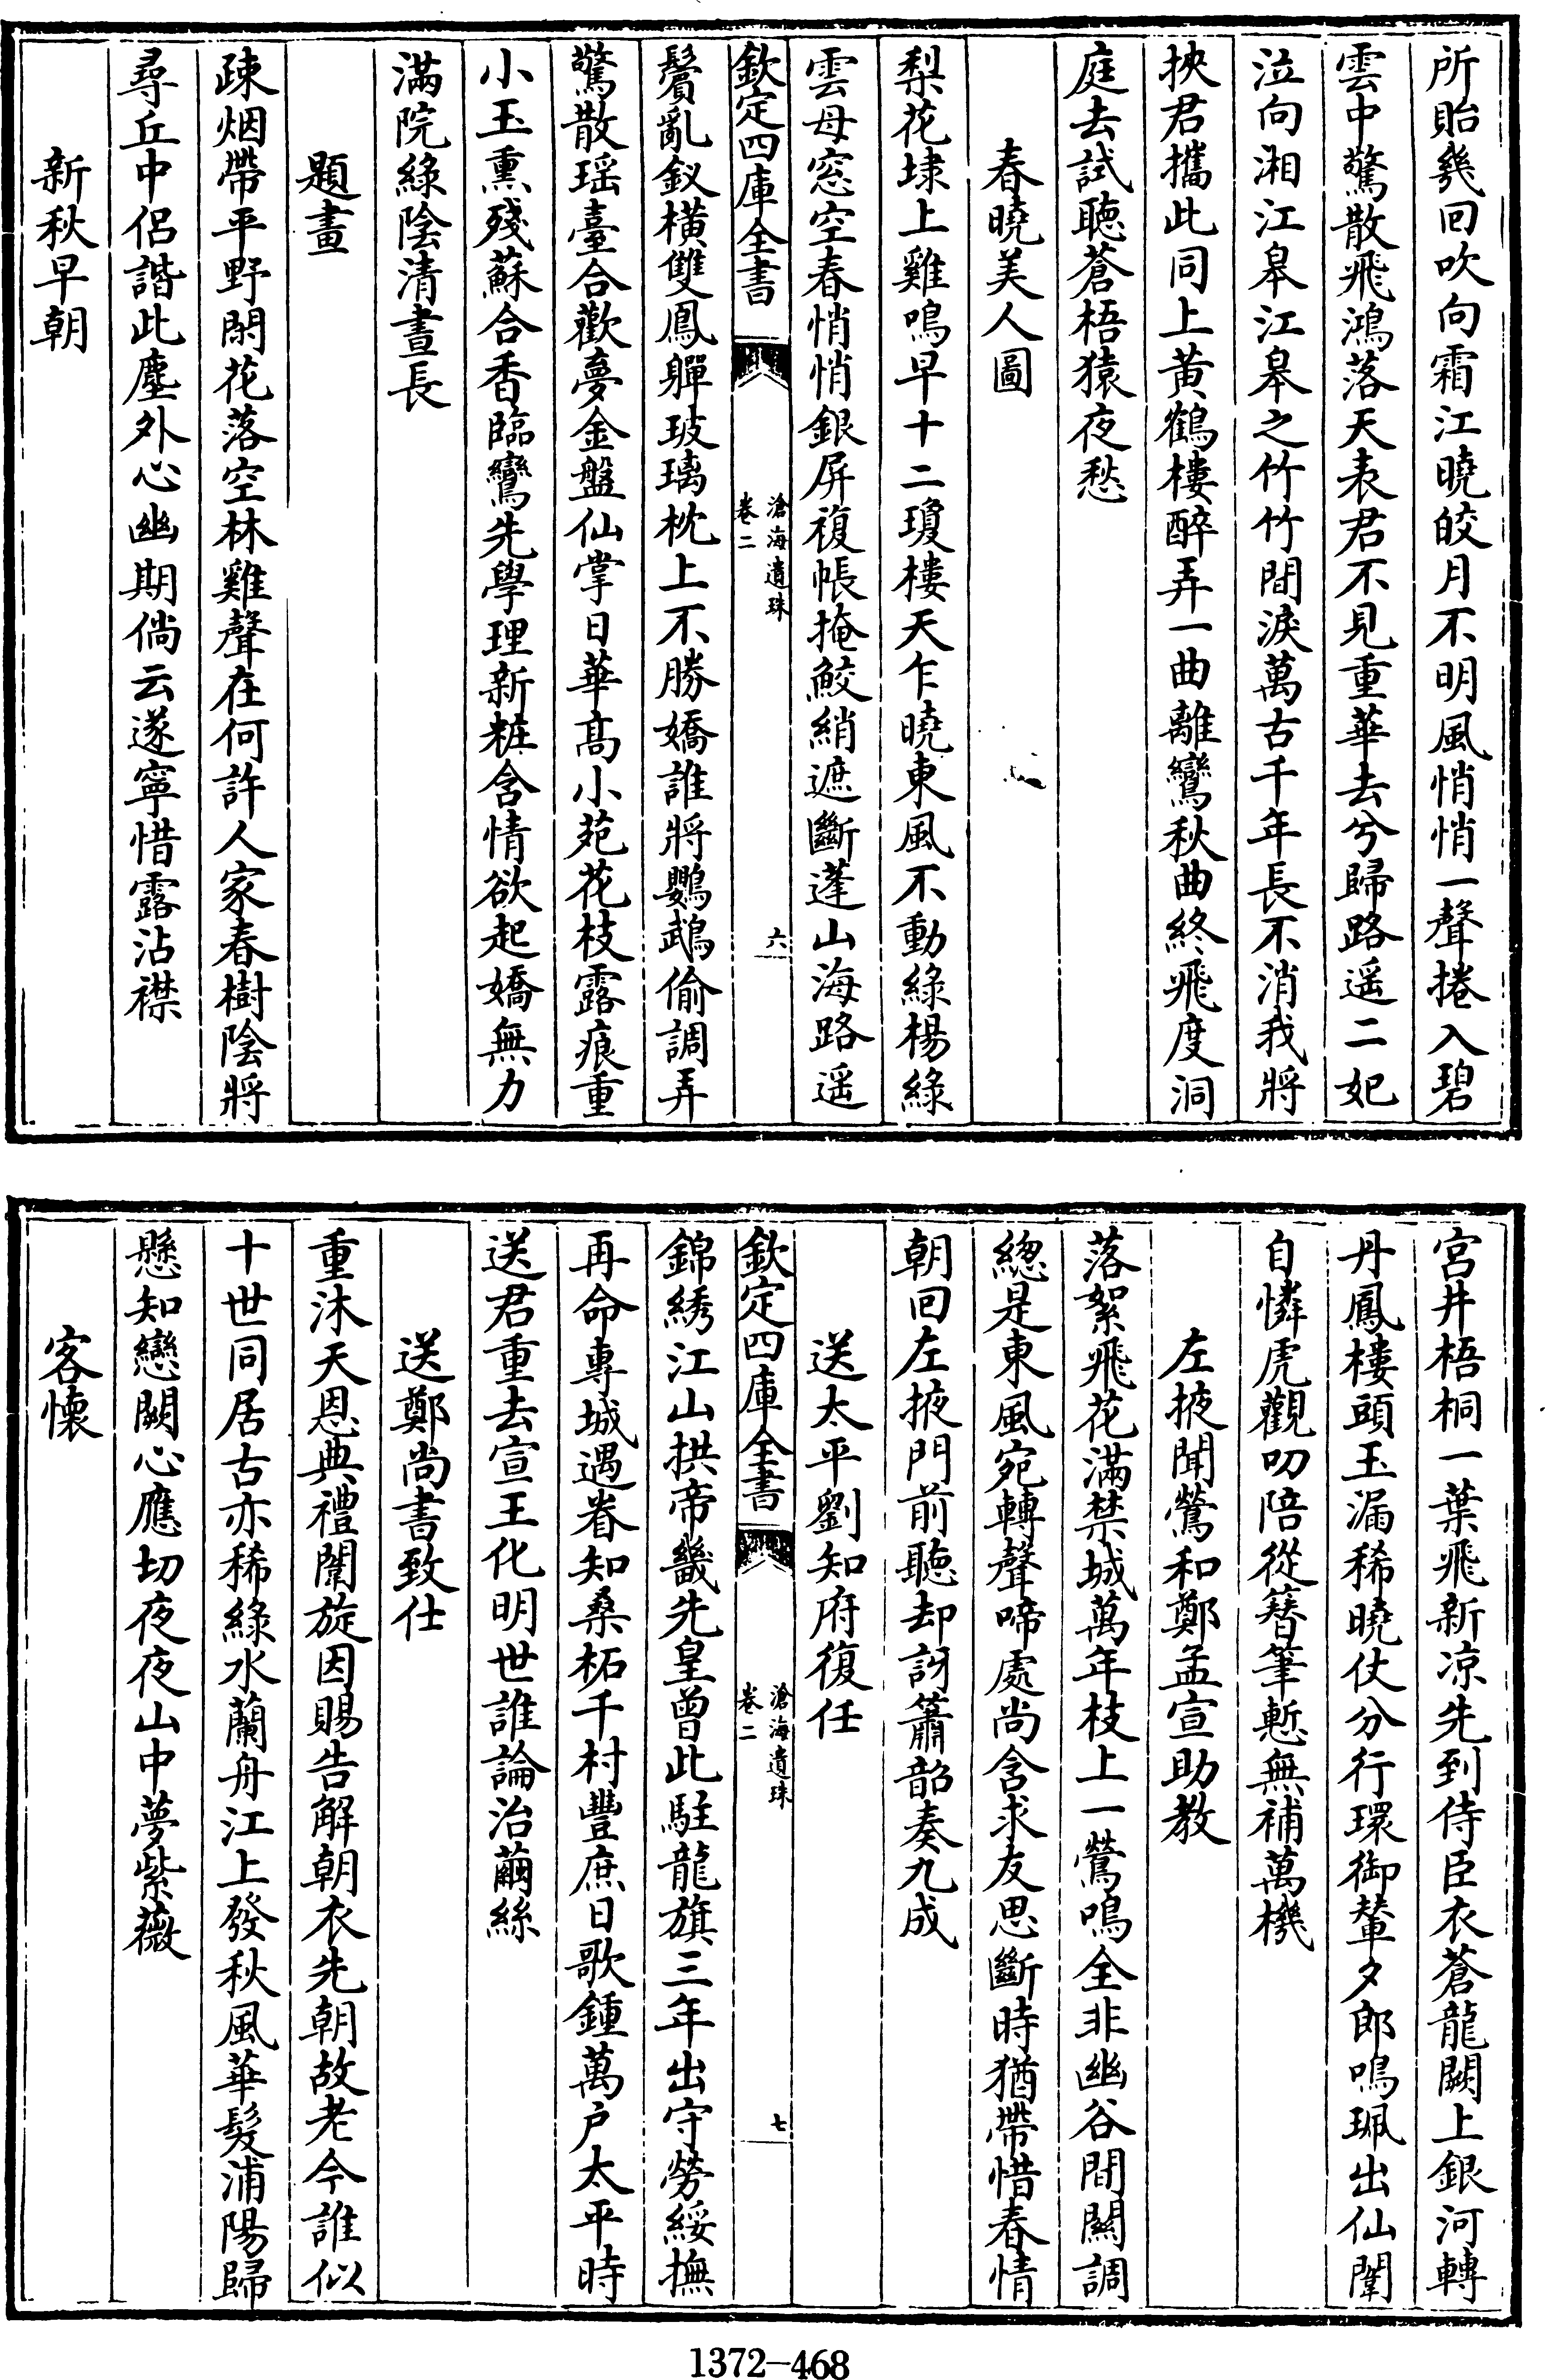 所貽幾回吹向霜江曉皎月不明風悄悄一聲捲入碧
雲中驚散飛鴻落天表君不見重華去兮歸路遥二妃
泣向湘江皋江皋之竹竹間淚萬古千年長不消我將
挾君攜此同上黄鶴樓醉弄一曲離鸞秋曲終飛度洞
庭去試聽蒼梧猿夜愁
春曉美人圖
梨花埭上雞鳴早十二瓊樓天乍曉東風不動綠楊綠
雲母窓空春悄悄銀屏複帳掩鮫綃遮斷蓬山海路遥
欽定四庫全書
滄海遺珠
卷二
六
鬢亂釵橫雙鳳嚲玻璃枕上不勝嬌誰將鸚鵡偷調弄
驚散瑶臺合歡夢金盤仙掌日華高小苑花枝露痕重
小玉熏殘蘇合香臨鸞先學理新粧含情欲起嬌無力
滿院綠陰清晝長
題畫
疎烟帶平野閑花落空林雞聲在何許人家春樹陰將
尋丘中侣諧此塵外心幽期倘云遂寧惜露沾襟
新秋早朝
宮井梧桐一葉飛新凉先到侍臣衣蒼龍闕上銀河轉
丹鳳樓頭玉漏稀曉仗分行環御輦夕郎鳴珮出仙闈
自憐虎觀叨陪從簪筆慙無補萬機
左掖聞鶯和鄭孟宣助教
落絮飛花滿禁城萬年枝上一鶯鳴全非幽谷間關調
總是東風宛轉聲啼處尚含求友思斷時猶帶惜春情
朝回左掖門前聽却訝簫韶奏九成
送太平劉知府復任
欽定四庫全書
滄海遺珠
卷二
七
錦綉江山拱帝畿先皇曾此駐龍旗三年出守勞綏撫
再命專城遇眷知桑柘千村豐庶日歌鍾萬户太平時
送君重去宣王化明世誰論治繭絲
送鄭尚書致仕
重沐天恩典禮闈旋因賜告解朝衣先朝故老今誰似
十世同居古亦稀綠水蘭舟江上發秋風華髮浦陽歸
懸知戀闕心應切夜夜山中夢紫薇
客懷
1372-468